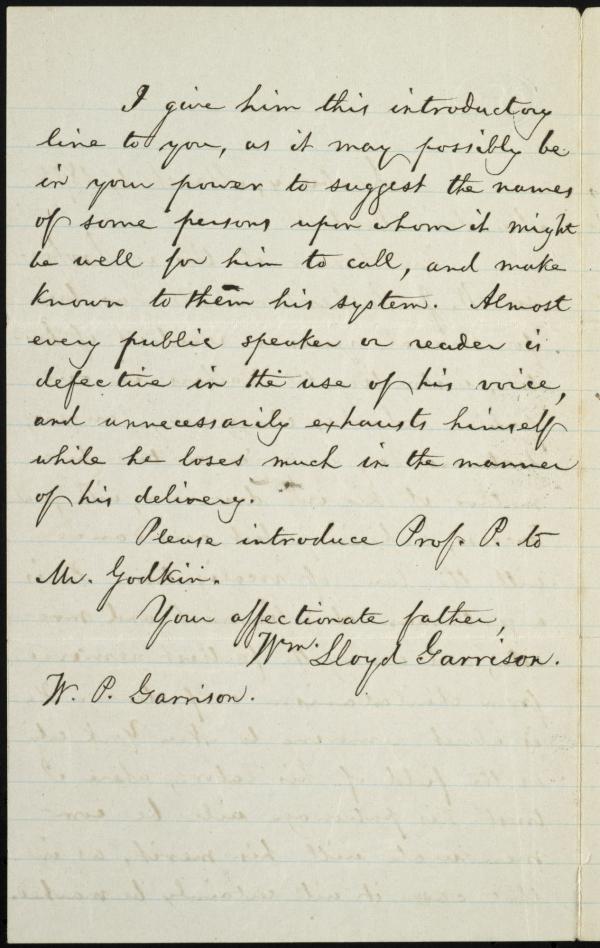 I give him this introductory
line to you, as it may possibly be
in your power to suggest the names
of some persons upon whom it might
be well for him to call, and make
known to them his system. Almost
every public speaker or reader is
defective in the use of his voice,
and unnecessarily exhausts himself
while he loses much in the manner
of his delivery.
Please introduce Prof. P. to
Mr. Godkin.
Your affectionate father,
Wm. Lloyd Garrison.
W. P. Garrison.